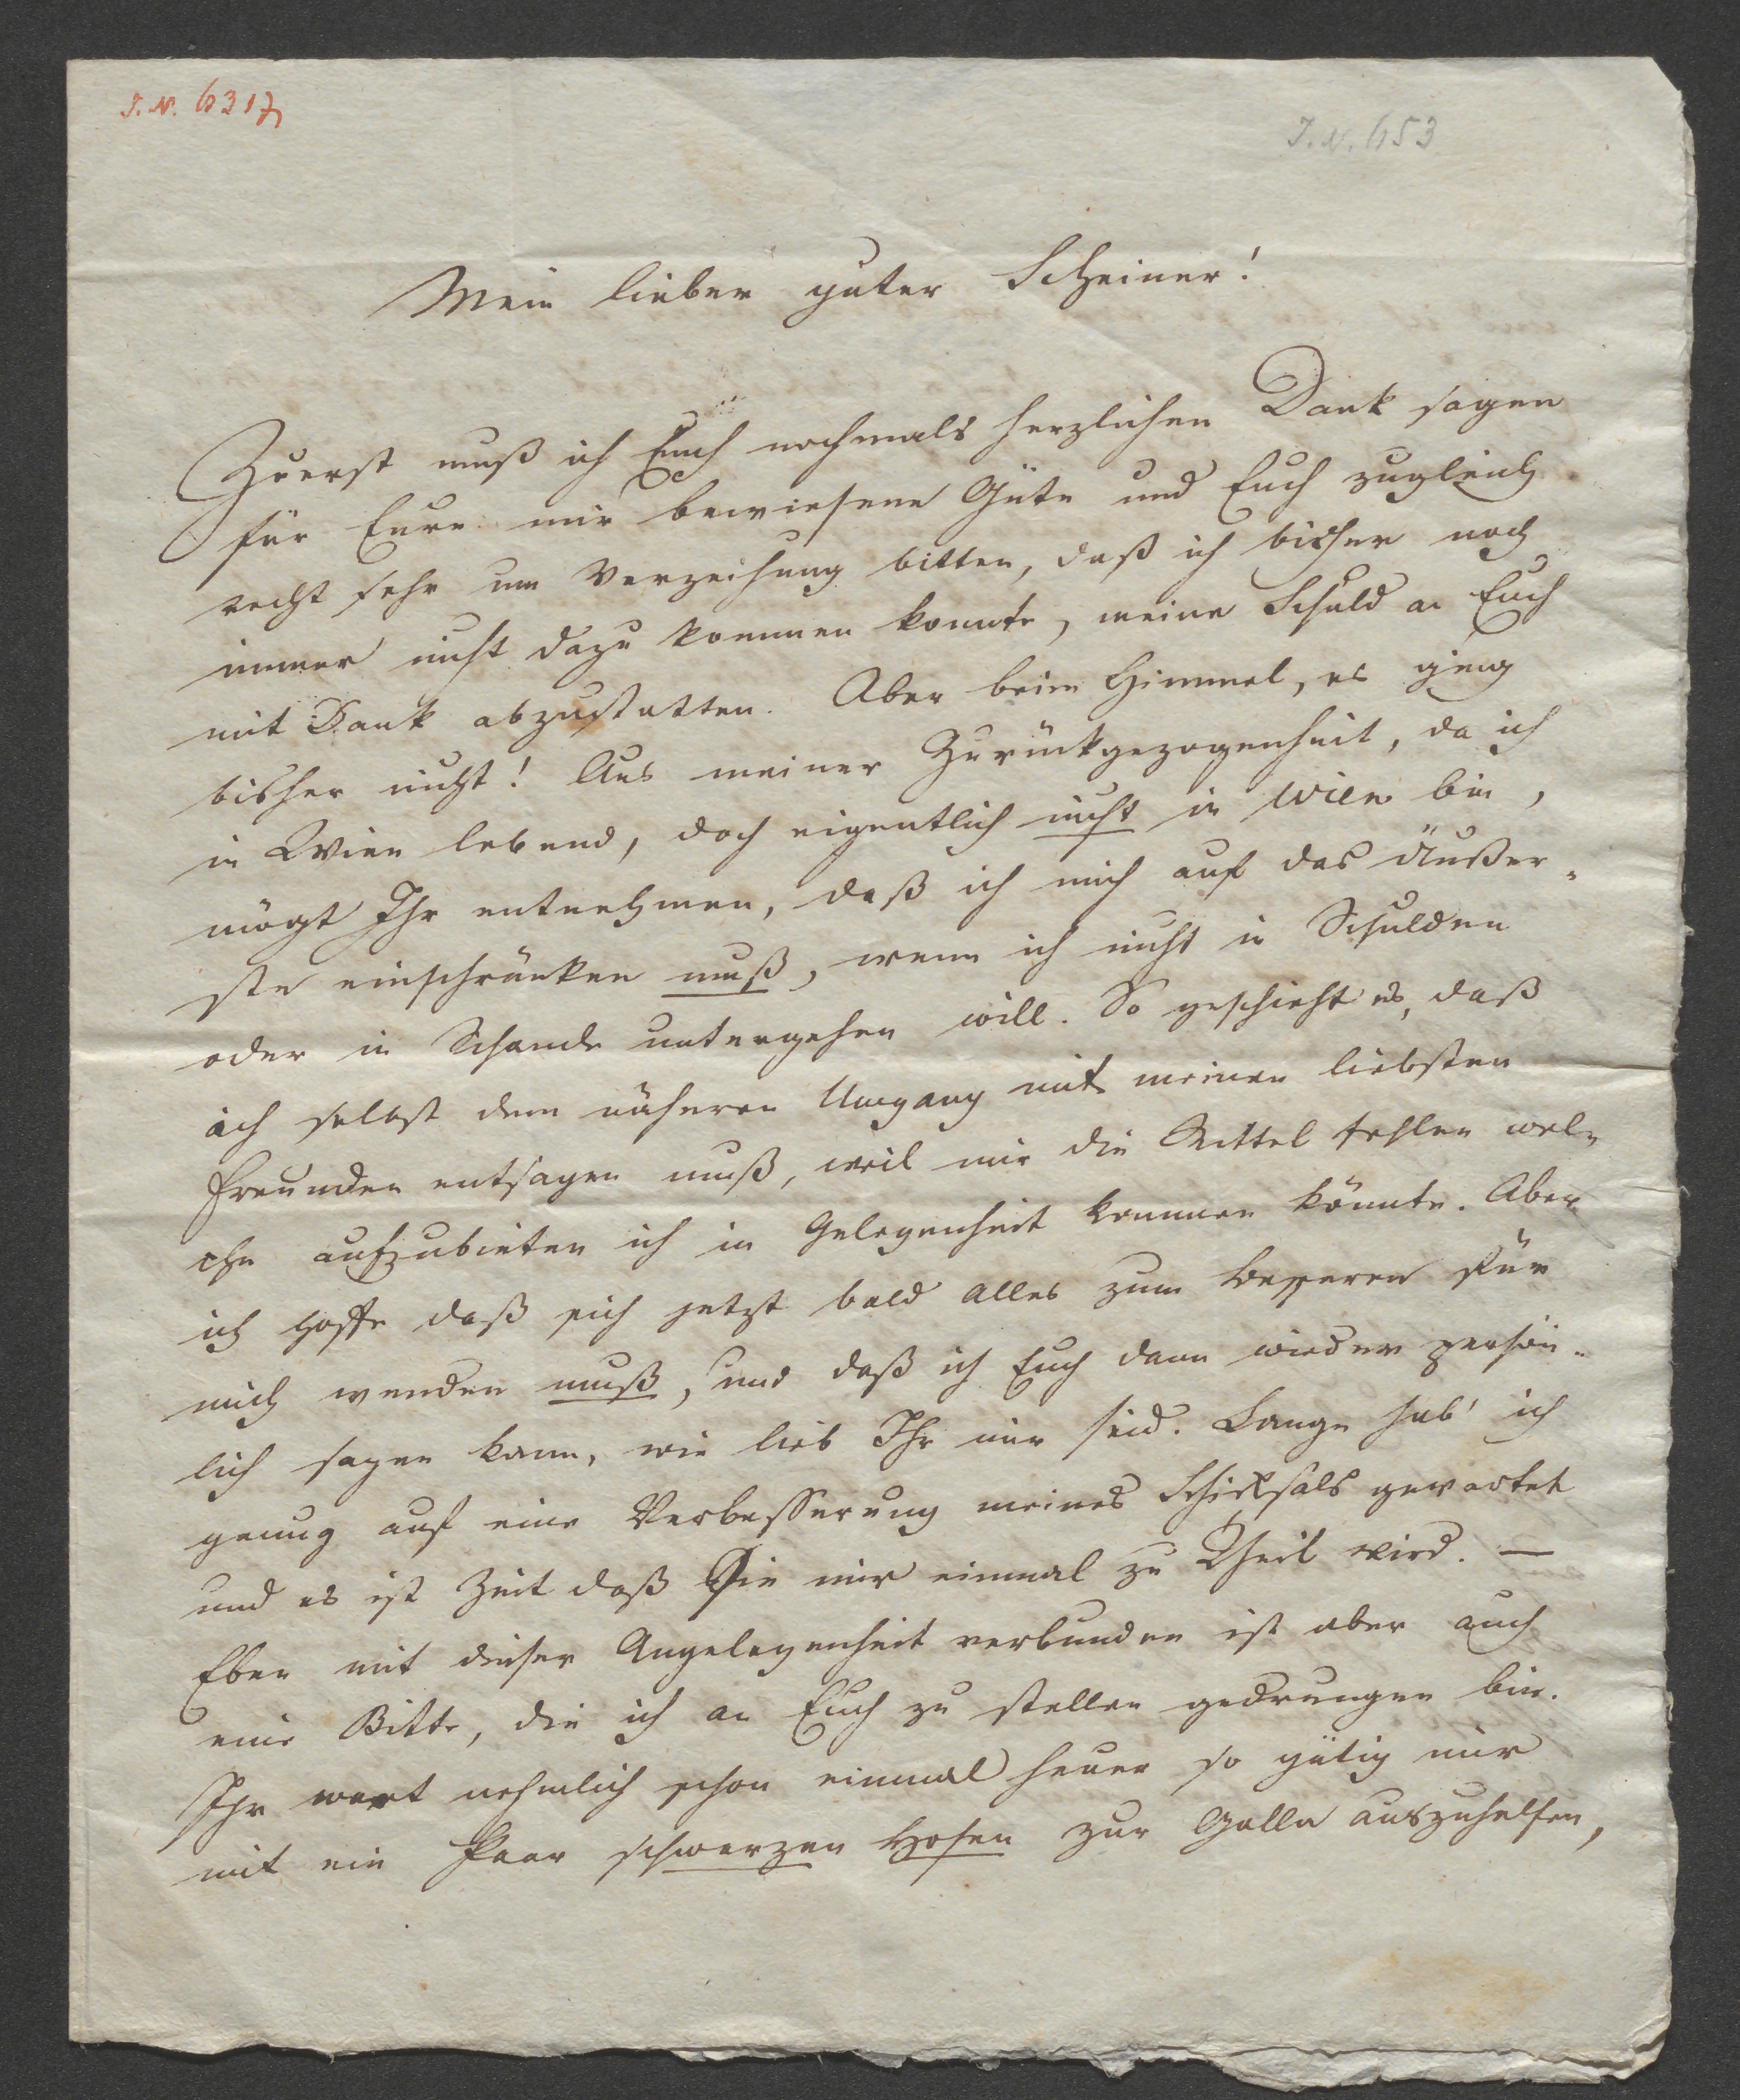 I. N. 6317
I. N. 653
Mein lieber guter Scheiner!
Zuerst muß ich Euch nochmals herzlichen Dank sagen
für Eure mir bewiesene Güte und Euch zugleich
recht sehr um Verzeihung bitten, daß ich bisher noch
immer nicht dazu kommen konnte, meine Schuld an Euch
mit Dank abzustatten. Aber beim Himmel, es ging
bisher nicht! Aus meiner Zurückgezogenheit, da ich
in Wien lebend, doch eigentlich nicht in Wien bin,
mögt Ihr entnehmen, daß ich mich auf das Äußer-
ste einschränken muß, wenn ich nicht in Schulden
oder in Schande untergehen will. So geschieht es, daß
ich selbst dem näheren Umgang mit meinen liebsten
Freunden entsagen muß, weil mir die Mittel fehlen wel-
che aufzubieten ich in Gelegenheit kommen könnte. Aber
ich hoffe daß sich jetzt bald Alles zum Besseren für
mich wenden muß, und daß ich Euch dann wieder persön-
lich sagen kann, wie lieb Ihr mir seid. Lange hab' ich
genug auf eine Verbesserung meines Schicksals gewartet
und es ist Zeit daß Sie mir einmal zu Theil wird. —
Eben mit dieser Angelegenheit verbunden ist aber auch
eine Bitte, die ich an Euch zu stellen gedrungen bin.
Ihr wart nehmlich schon einmal heuer so gütig mir
mit ein Paar schwarzen Hosen zur Galla auszuhelfen,